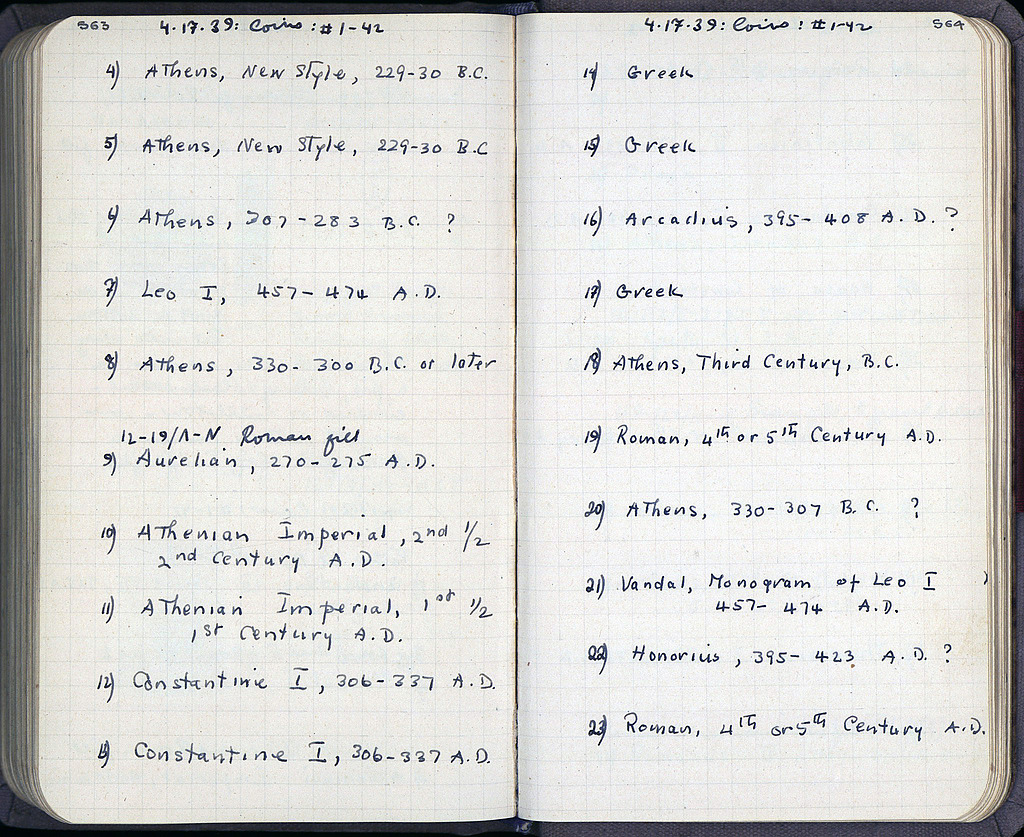 563 4.17.39: Coins: #1-42
4) Athens, New Style, 229-30 B.C.
5) Athens, New Style, 229-30 B.C
6) Athens, 307-283 B.C. ?
7) Leo I, 457-474 A.D.
8) Athens, 330-300 B.C. or later
12-19/Λ-N Roman fill
9) Aurelian, 270-275 A.D.
10) Athenian Imperial, 2nd 1/2
2nd Century A.D.
11) Athenian Imperial, 1st 1/2
1st Century A.D.
12) Constantine I, 306-337 A.D.
13) Constantine I, 306-337 A.D.
4.17.39: Coins: #1-42 564
14) Greek
15) Greek
16) Arcadius, 395-408 A.D. ?
17) Greek
18) Athens, Third Century, B.C.
19) Roman, 4th or 5th Century A.D.
20) Athens, 330-307 B.C. ?
21) Vandal, Monogram of Leo I
457-474 A.D.
22) Honorius, 395-423 A.D. ?
23) Roman, 4th or 5th Century A.D.